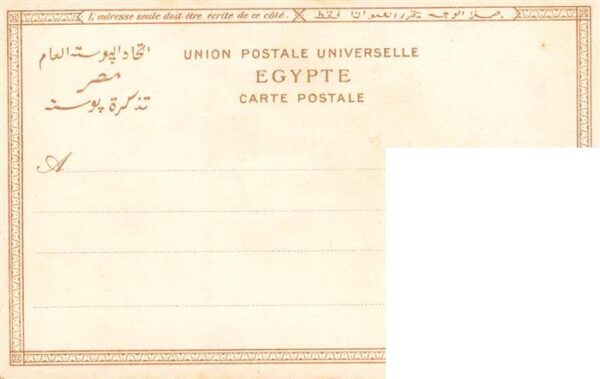 L'adresse seule doit être écrite de ce côté.
هذا الوجه يحرر العنوان فقط
اتحاد البوسته العام
مصر
تذكرة بوسته
UNION POSTALE UNIVERSELLE
EGYPTE
CARTE POSTALE
A